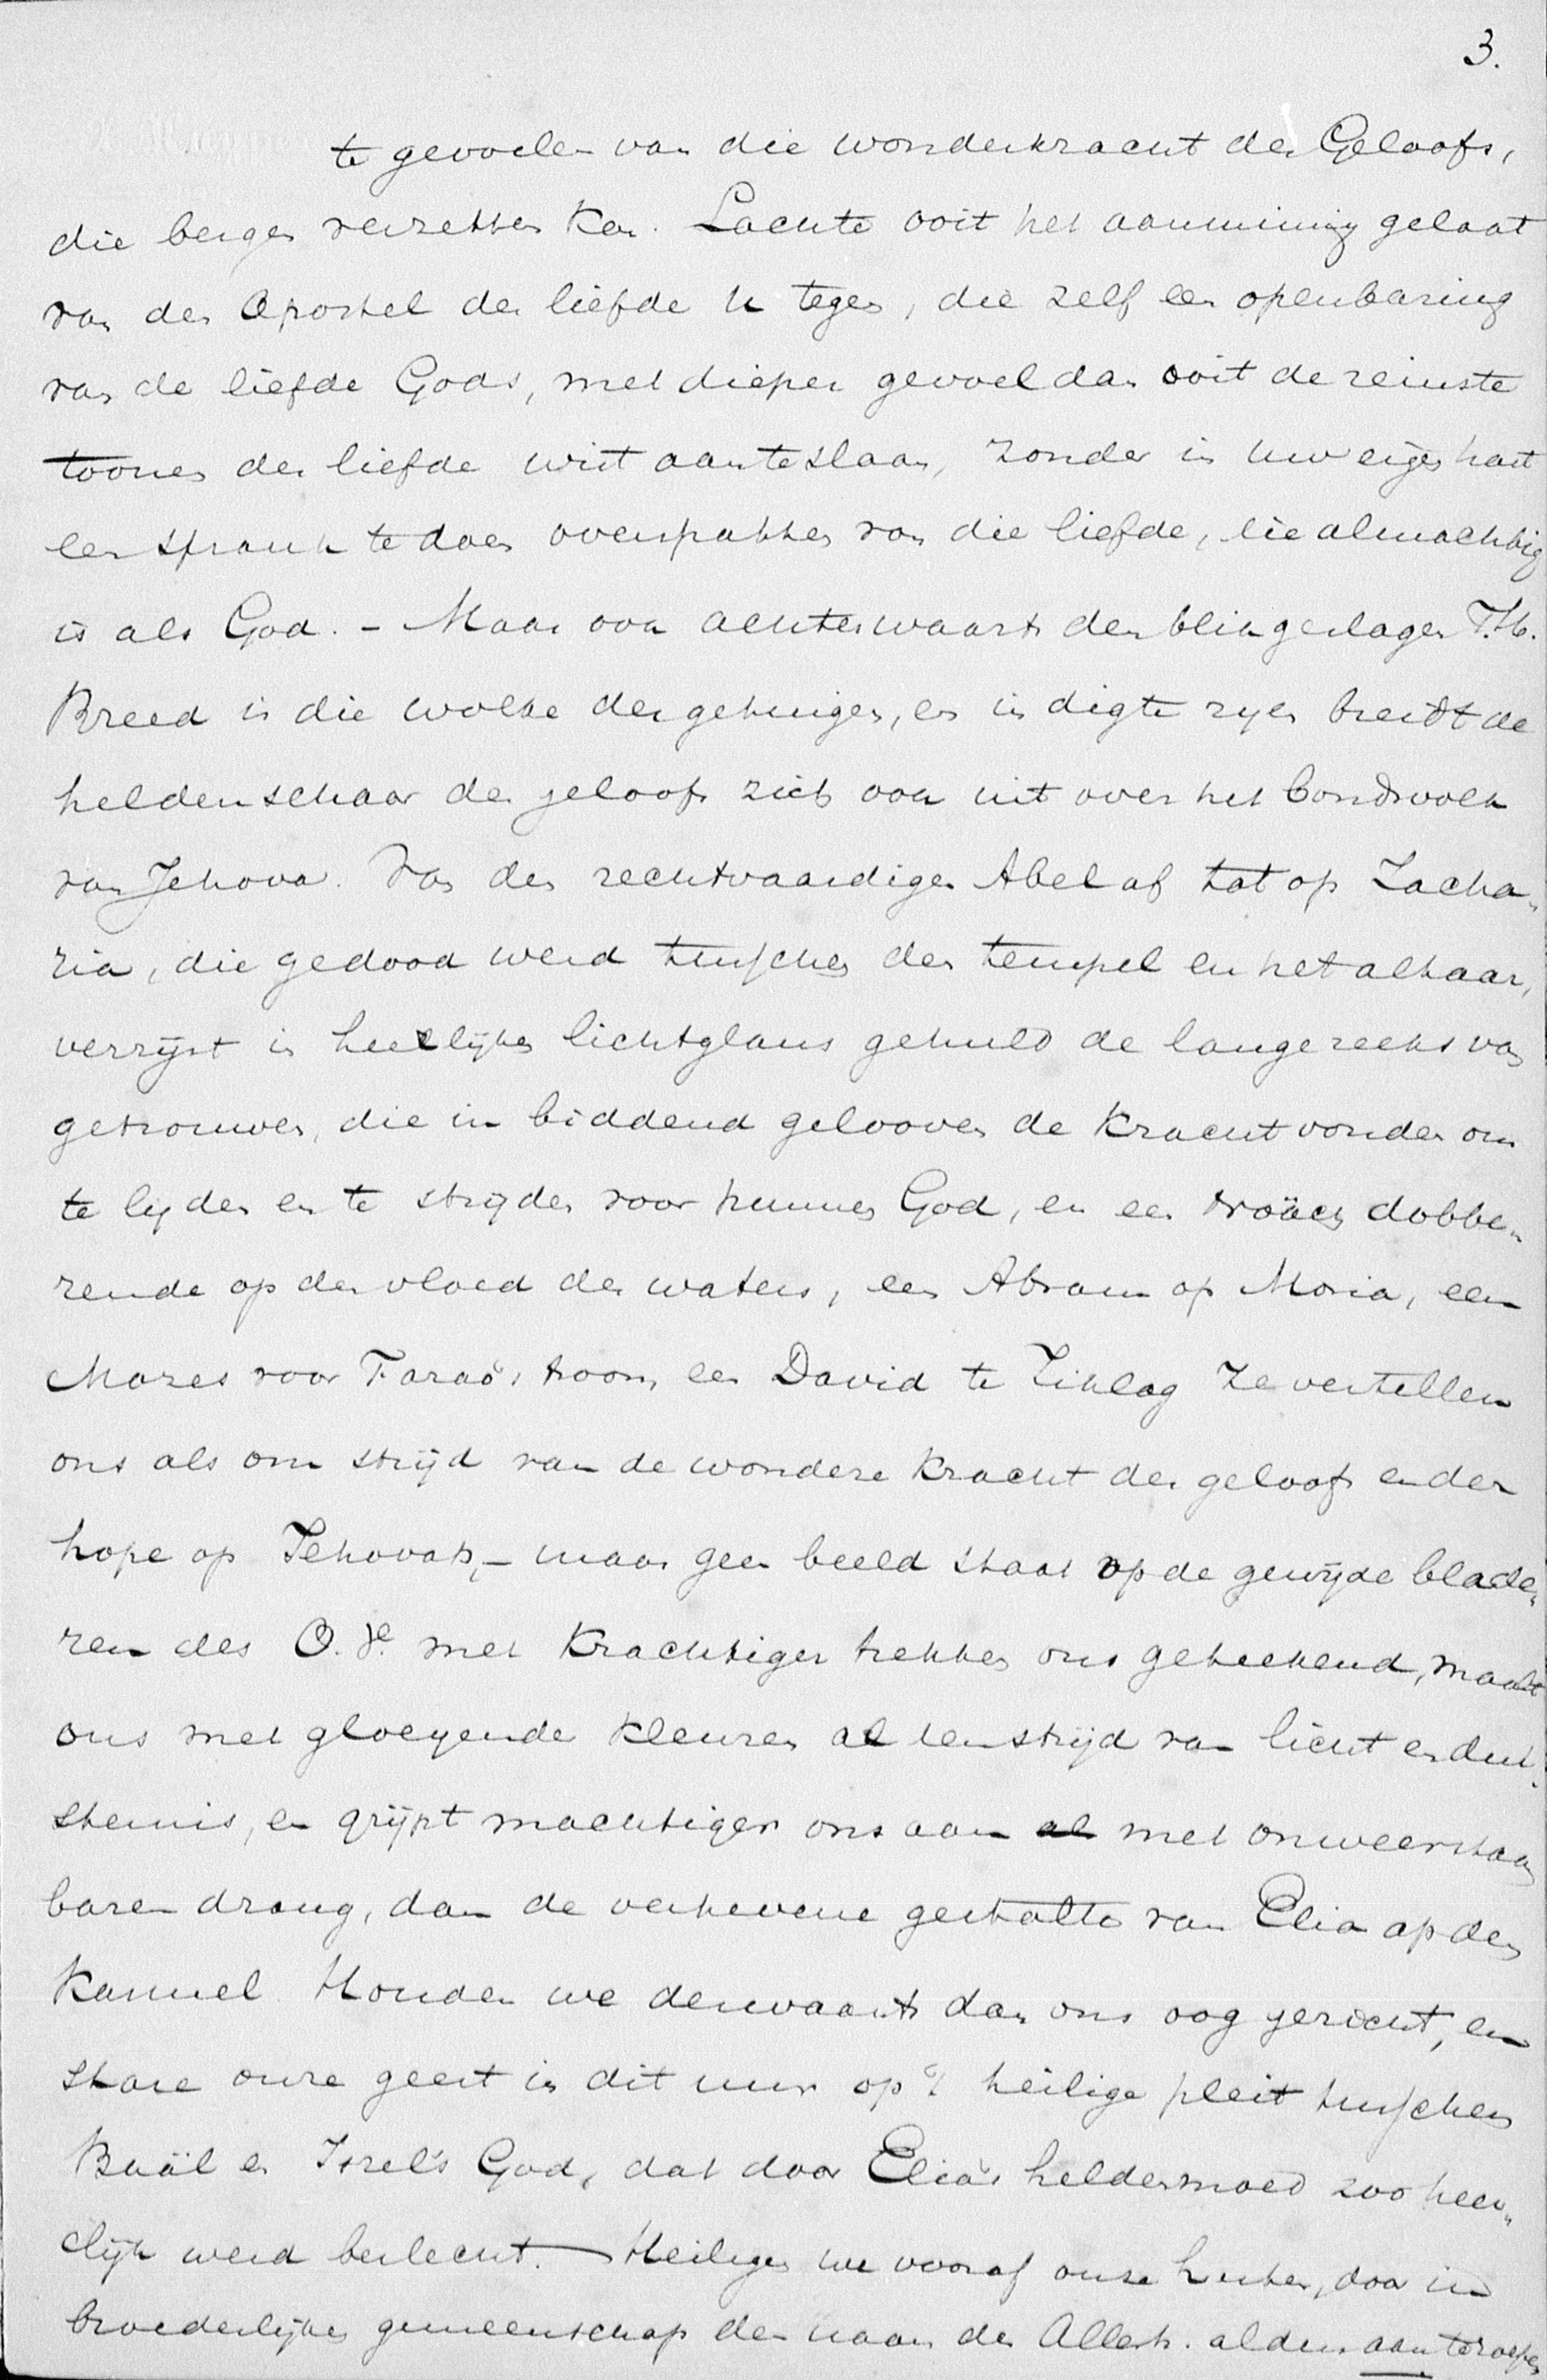 3.
te gevoelen van die wonderkracht des Geloofs,
die bergen verzetten kan. Lachte ooit het aanminnig gelaat
van den Apostel der liefde U tegen, die zelf een openbaring
van de liefde Gods, met dieper gevoel dan ooit de reinste
toonen der liefde wist aanteslaan, zonder in Uw eigen hart
een spronk te doen overspatten van die liefde, die almachtig
is als God. – Maar ook achterwaarts den blik geslagen T.H.
Breed is die wolke der getuigen, en in digte ryen breidt de
heldenschaar des geloofs zich ook uit over het Bondsvolk
van Jehova. Van den rechtvaardigen Abel af tot op Zacha„
ria, die gedood werd tusschen den tempel en het altaar,
verrijst in heerlijken lichtglans gehuld de lange reeks van
getrouwen, die in biddend gelooven de kracht vonden om
te lyden en te stryden voor hunnen God, en een Noäch dobbe„
rende op den vloed der waters, een Abram op Moria, een
Mozes voor Farao's troon, een David te Ziklag ze vertellen
ons als om strijd van de wondere kracht des geloofs en der
hope op Jehovah, – maar geen beeld staat op de gewijde blade„
ren des O.Vs. met krachtiger trekken ons geteekend, maalt
ons met gloeyende kleuren al den strijd van licht en duis„
sternis, en grijpt machtiger ons aan al met onweerstaan
baren drang, dan de verhevene gestalte van Elia op den
Karmel. Houden we derwaarts dan ons oog gericht, en
stare onze geest in dit uur op 't heilige pleit tusschen
Baäl en Isrel's God, dat door Elia's heldenmoed zoo heer„
lijk werd beslecht. – Heiligen we vooraf onze harten, door in
broederlijke gemeenschap den naam des Allerh. aldus aan te roepen